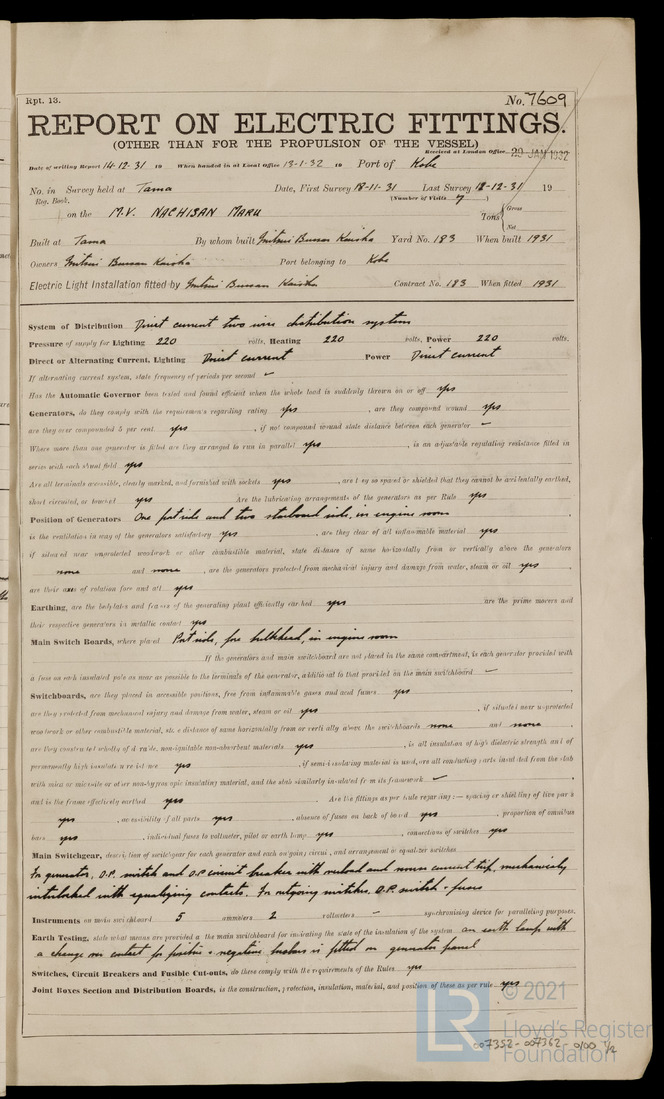 Rpt. 13.
No. 7609
REPORT ON ELECTRIC FITTINGS.
(OTHER THAN FOR THE PROPULSION OF THE VESSEL)
Received at London Office 29 JAN 1932
Date of writing Report 14-12-31 19 When handed in at Local Office 13-1-32 19 Port of Kobe
No. in Survey held at Tama Date, First Survey 18-11-31 Last Survey 12-12-31 19
Reg. Book. (Number of Visits 7)
on the M.V. NACHISAN MARU Tons { Gross
Net
Built at Tama By whom built Mitsui Bussan Kaisha Yard No. 183 When built 1931
Owners Mitsui Bussan Kaisha Port belonging to Kobe
Electric Light Installation fitted by Mitsui Bussan Kaisha Contract No. 183 When fitted 1931
System of Distribution Direct current two wire distribution system
Pressure of supply for Lighting 220 volts, Heating 220 volts, Power 220 volts.
Direct or Alternating Current, Lighting Direct current Power Direct current
If alternating current system, state frequency of periods per second –
Has the Automatic Governor been tested and found efficient when the whole load is suddenly thrown on or off yes
Generators, do they comply with the requirements regarding rating yes , are they compound wound yes
are they over compounded 5 per cent yes , if not compound wound state distance between each generator –
Where more than one generator is fitted are they arranged to run in parallel yes , is an adjustable regulating resistance fitted in
series with each shunt field yes
Are all terminals accessible, clearly marked, and furnished with sockets yes , are they so spaced or shielded that they cannot be accidentally earthed,
short circuited, or touched yes Are the lubricating arrangements of the generators as per Rule yes
Position of Generators One port side and two starboard side, in engine room
is the ventilation in way of the generators satisfactory yes , are they clear of all inflammable material yes
if situated near unprotected woodwork or other combustible material, state distance of same horizontally from or vertically above the generators
none and none , are the generators protected from mechanical injury and damage from water, steam or oil yes
are their axes of rotation fore and aft yes
Earthing, are the bedplates and frames of the generating plant efficiently earthed yes are the prime movers and
their respective generators in metallic contact yes
Main Switch Boards, where placed Port side, fore bulkhead, in engine room
If the generators and main switchboard are not placed in the same compartment, is each generator provided with
a fuse on each insulated pole as near as possible to the terminals of the generator, additional to that provided on the main switchboard –
Switchboards, are they placed in accessible positions, free from inflammable gases and acid fumes yes
are they protected from mechanical injury and damage from water, steam or oil yes , if situated near unprotected
woodwork or other combustible material, state distance of same horizontally from or vertically above the switchboards none and none
are they constructed wholly of durable, non-ignitable non-absorbent materials yes , is all insulation of high dielectric strength and of
permanently high insulation resistance yes , if semi-insulating material is used, are all conducting parts insulated from the slab
with mica or micanite or other non-hygroscopic insulating material, and the slab similarly insulated from its framework –
and is the frame effectively earthed yes Are the fittings as per Rule regarding:— spacing or shielding of live parts
yes , accessibility of all parts yes , absence of fuses on back of board yes , proportion of omnibus
bars yes , individual fuses to voltmeter, pilot or earth lamp yes , connections of switches yes
Main Switchgear, description of switchgear for each generator and each outgoing circuit, and arrangement of equaliser switches
For generator, D.P. switch and D.P. circuit breaker with overload and reverse current trip, mechanically
interlocked with equalizing contacts. For outgoing switches, D.P. switch & fuses
Instruments on main switchboard 5 ammeters 2 voltmeters – synchronising device for paralleling purposes.
Earth Testing, state what means are provided at the main switchboard for indicating the state of the insulation of the system an earth lamp with
a change over contact for positive & negative busbars is fitted on generator panel
Switches, Circuit Breakers and Fusible Cut-outs, do these comply with the requirements of the Rules yes
Joint Boxes Section and Distribution Boards, is the construction, protection, insulation, material, and position of these as per rule yes
LR © 2021
Lloyd's Register
Foundation
007352-007362-0100 1/2